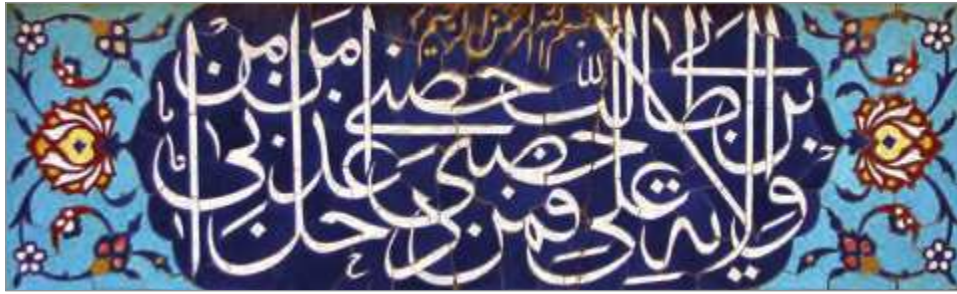 بسم الله الرحمن الرحیم
ولایة علی بن ابی طالب حصنی فمن دخل حصنی امن من عذابی